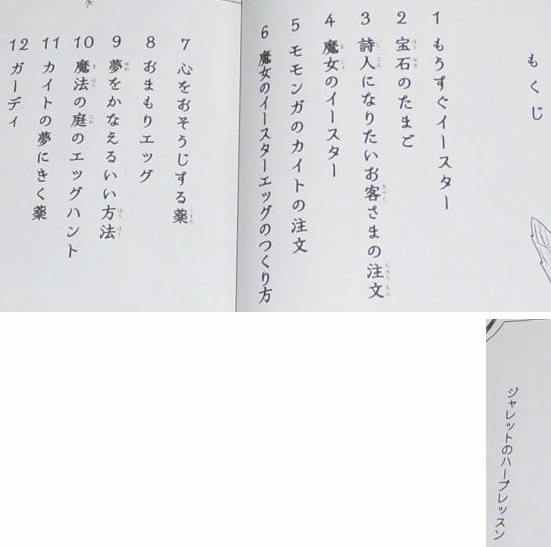 もくじ
1 もうすぐイースター
2 宝石のたまご
3 詩人になりたいお客さまの注文
4 魔女のイースター
5 モモンガのカイトの注文
6 魔女のイースターエッグのつくり方
7 心をおそうじする薬
8 おまもりエッグ
9 夢をかなえるいい方法
10 魔法の庭のエッグハント
11 カイトの夢にきく薬
12 ガーディ
ジャレットのハーブレッスン